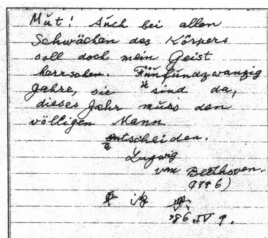 Mut! Auch bei allen
Schwächen des Körpers
soll doch mein Geist
herrschen. Fünfundzwanzig
Jahre, sie sind da,
dieses Jahr muss den
völligen Mann
entscheiden.
Ludwig
van Beethoven.